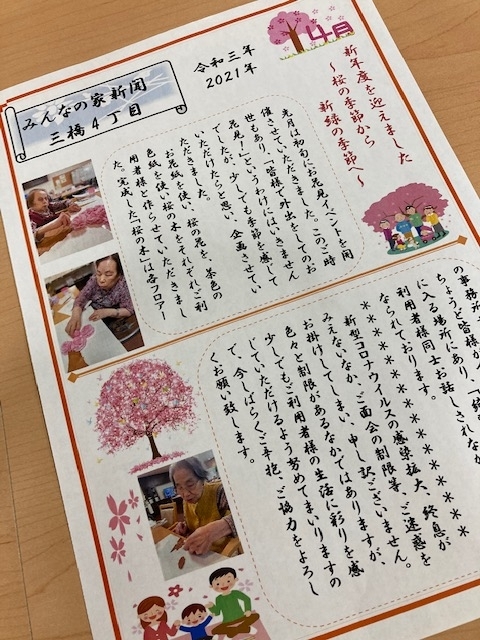 みんなの家新聞
三橋4丁目
令和三年
2021年
4月
新年度を迎えました
～桜の季節から
新緑の季節へ～
先月は初旬にお花見イベントを開
催させていただきました。このご時
世もあり、「皆様で外出をしてのお
花見！」というわけにはいきません
でしたが、少しでも季節を感じて
いただけたらと思い、企画させてい
ただきました。
お花紙を使い、桜の花を、茶色の
色紙を使い桜の木をそれぞれご利
用者様と作らせていただきまし
た。完成した「桜の木」は各フロアー
の事務所
ちょうど皆様が
に入る場所にあり、「綺
利用者様同士お話しされなが
なられております。
＊＊＊＊＊＊＊＊＊＊＊＊＊＊
新型コロナウイルスの感染拡大、終息が
みえないなか、ご面会の制限等、ご迷惑を
お掛けしてしまい、申し訳ございません。
色々と制限があるなかではありますが、
少しでもご利用者様の生活に彩りを感
じていただけるよう努めてまいりますの
で、今しばらくご辛抱、ご協力をよろし
くお願い致します。